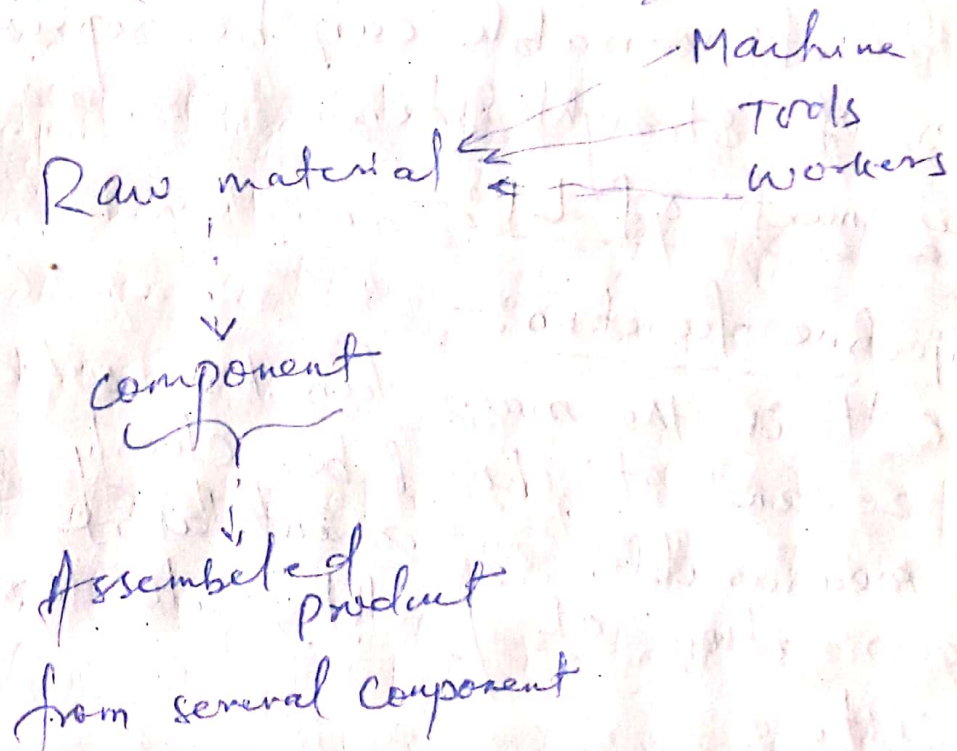 Machine
Tools
Raw material
workers
component
Assembeled
product
from several component